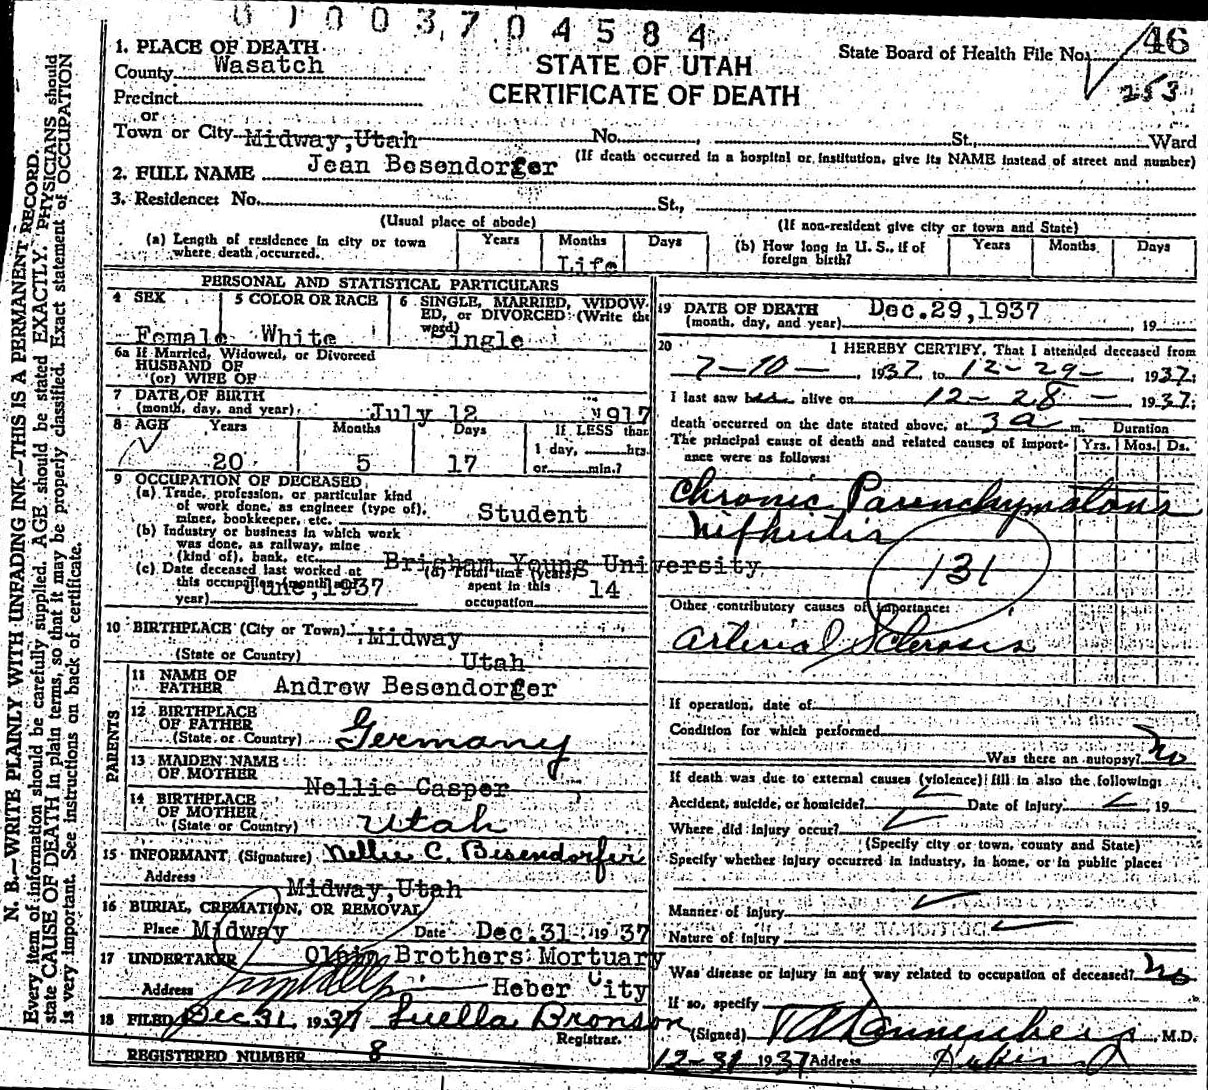 0 1 0 0 3 7 0 4 5 8 4
46
253
State Board of Health File No.
STATE OF UTAH
CERTIFICATE OF DEATH
1. PLACE OF DEATH
County Wasatch
Precinct
or
Town or City Midway, Utah No. St., Ward
(If death occurred in a hospital or institution, give its NAME instead of street and number)
2. FULL NAME Jean Besendorfer
3. Residence: No. St.,
(Usual place of abode) (If non-resident give city or town and State)
(a) Length of residence in city or town where death occurred. Years Months Days
Life
(b) How long in U. S., if of foreign birth? Years Months Days
PERSONAL AND STATISTICAL PARTICULARS
4 SEX
Female
5 COLOR OR RACE
White
6 SINGLE, MARRIED, WIDOWED, or DIVORCED (Write the word)
Single
6a If Married, Widowed, or Divorced
HUSBAND OF
(or) WIFE OF
7 DATE OF BIRTH
(month, day, and year) July 12 1917
8 AGE Years Months Days If LESS than
1 day, hrs.
20 5 17 or min.?
9 OCCUPATION OF DECEASED
(a) Trade, profession, or particular kind
of work done, as engineer (type of),
miner, bookkeeper, etc. Student
(b) Industry or business in which work
was done, as railway, mine
(kind of), bank, etc. Brigham Young University
(c) Date deceased last worked at
this occupation (month and
year) June, 1937
(d) Total time (years)
spent in this
occupation 14
10 BIRTHPLACE (City or Town) Midway
(State or Country) Utah
PARENTS
11 NAME OF
FATHER Andrew Besendorfer
12 BIRTHPLACE
OF FATHER
(State or Country) Germany
13 MAIDEN NAME
OF MOTHER Nellie Casper
14 BIRTHPLACE
OF MOTHER
(State or Country) Utah
15 INFORMANT (Signature) Nellie C. Besendorfer
Address Midway, Utah
16 BURIAL, CREMATION, OR REMOVAL
Place Midway Date Dec. 31 1937
17 UNDERTAKER Olpin Brothers Mortuary
Address Heber City
18 FILED Dec 31 1937 Luella Bronson
Registrar.
REGISTERED NUMBER 8
19 DATE OF DEATH
(month, day, and year) Dec. 29, 1937, 19
20 I HEREBY CERTIFY, That I attended deceased from
7-10-, 1937, to 12-29-, 1937;
I last saw alive on 12-28-1937;
death occurred on the date stated above, at 3 a m. Duration
The principal cause of death and related causes of importance were as follows: Yrs. Mos. Ds.
Chronic Parenchymatous
Nephritis
131
Other contributory causes of importance:
Arterial Sclerosis
If operation, date of
Condition for which performed
Was there an autopsy? No
If death was due to external causes (violence) fill in also the following:
Accident, suicide, or homicide? Date of injury , 19
Where did injury occur?
(Specify city or town, county and State)
Specify whether injury occurred in industry, in home, or in public place:
Manner of injury
Nature of injury
Was disease or injury in any way related to occupation of deceased? No
If so, specify
(Signed) M.D.
12-31 1937 Address
N. B.—WRITE PLAINLY WITH UNFADING INK—THIS IS A PERMANENT RECORD.
Every item of information should be carefully supplied. AGE should be stated EXACTLY. PHYSICIANS should
state CAUSE OF DEATH in plain terms, so that it may be properly classified. Exact statement of OCCUPATION
is very important. See instructions on back of certificate.